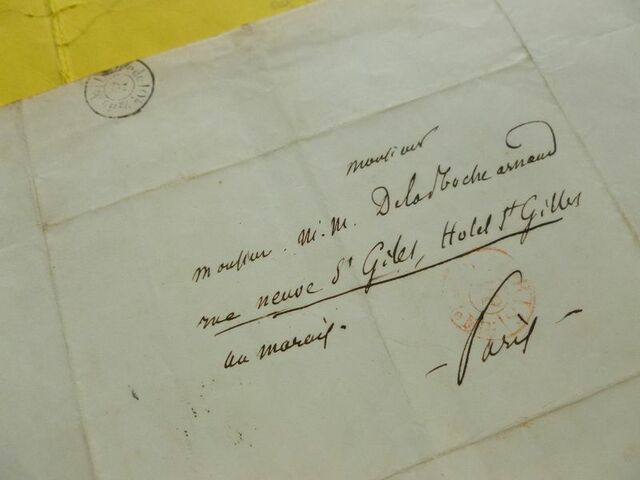 monsieur
monsieur. M. M. Delarochearnaud
rue neuve St Giles, Hotel St Gilles
au marais.
- Paris -